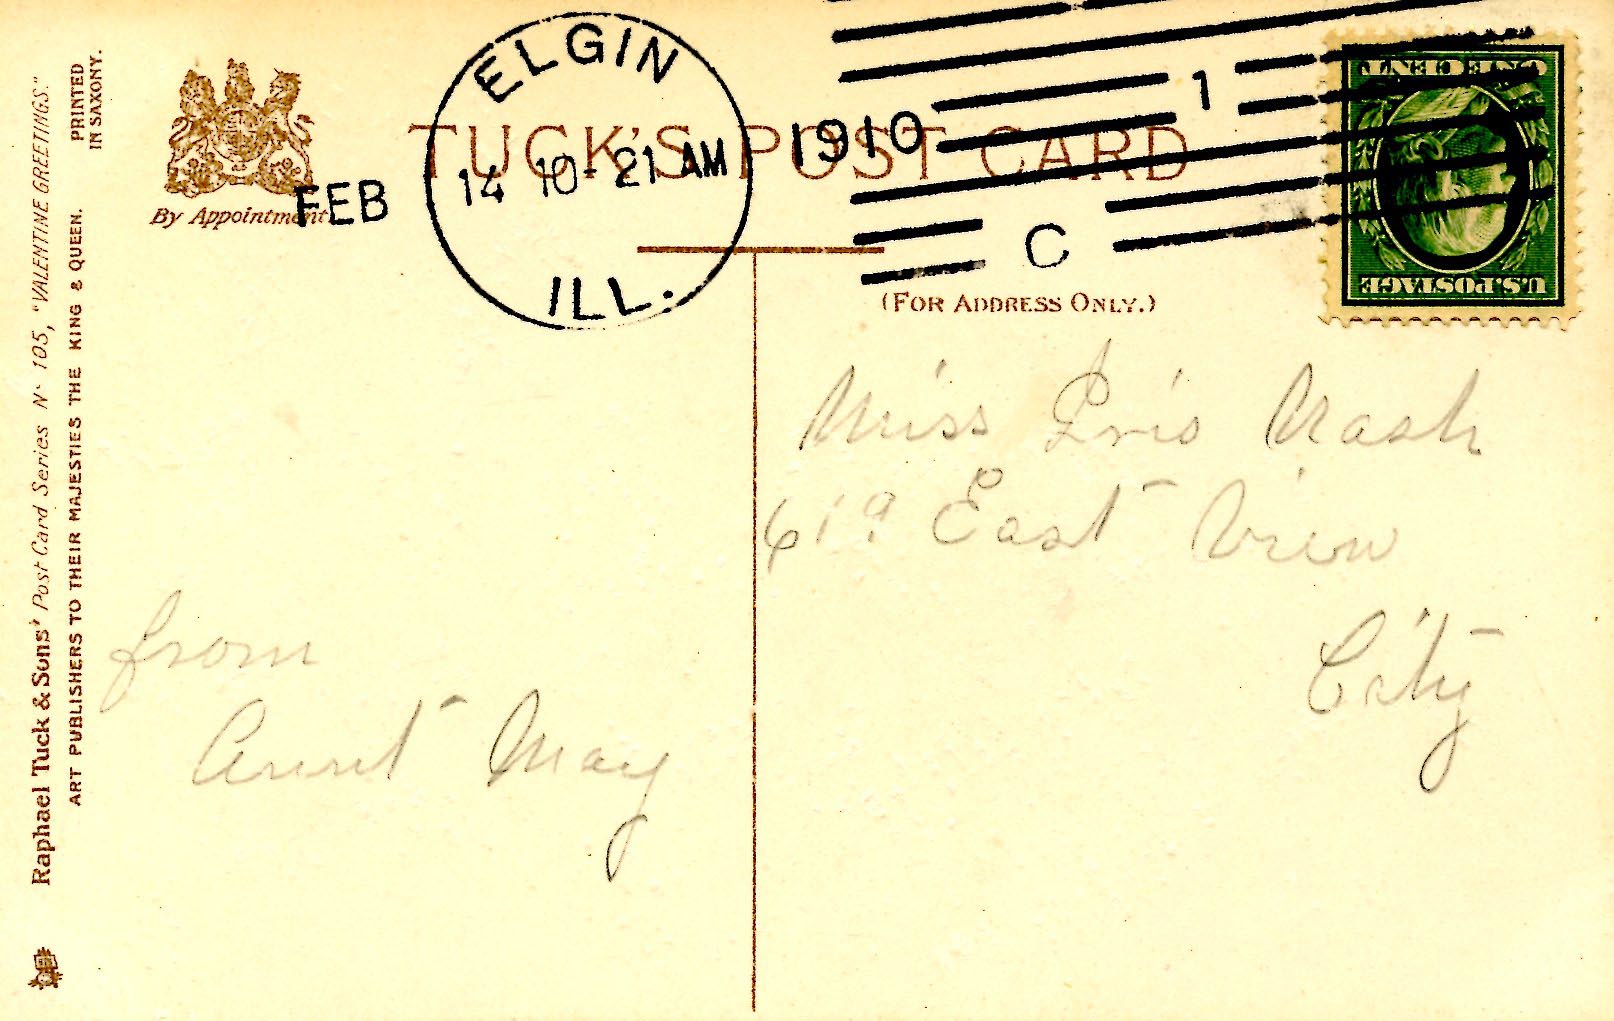 Raphael Tuck & Sons' Post Card Series Nº 105, "VALENTINE GREETINGS."
ART PUBLISHERS TO THEIR MAJESTIES THE KING & QUEEN.
PRINTED
IN SAXONY.
By Appointment
TUCK'S POST CARD
FEB
ELGIN
14 10-21 AM
ILL.
1910
1
C
ONE CENT
U.S. POSTAGE
(FOR ADDRESS ONLY.)
Miss Iris Nash
619 East View
City
from
Aunt May